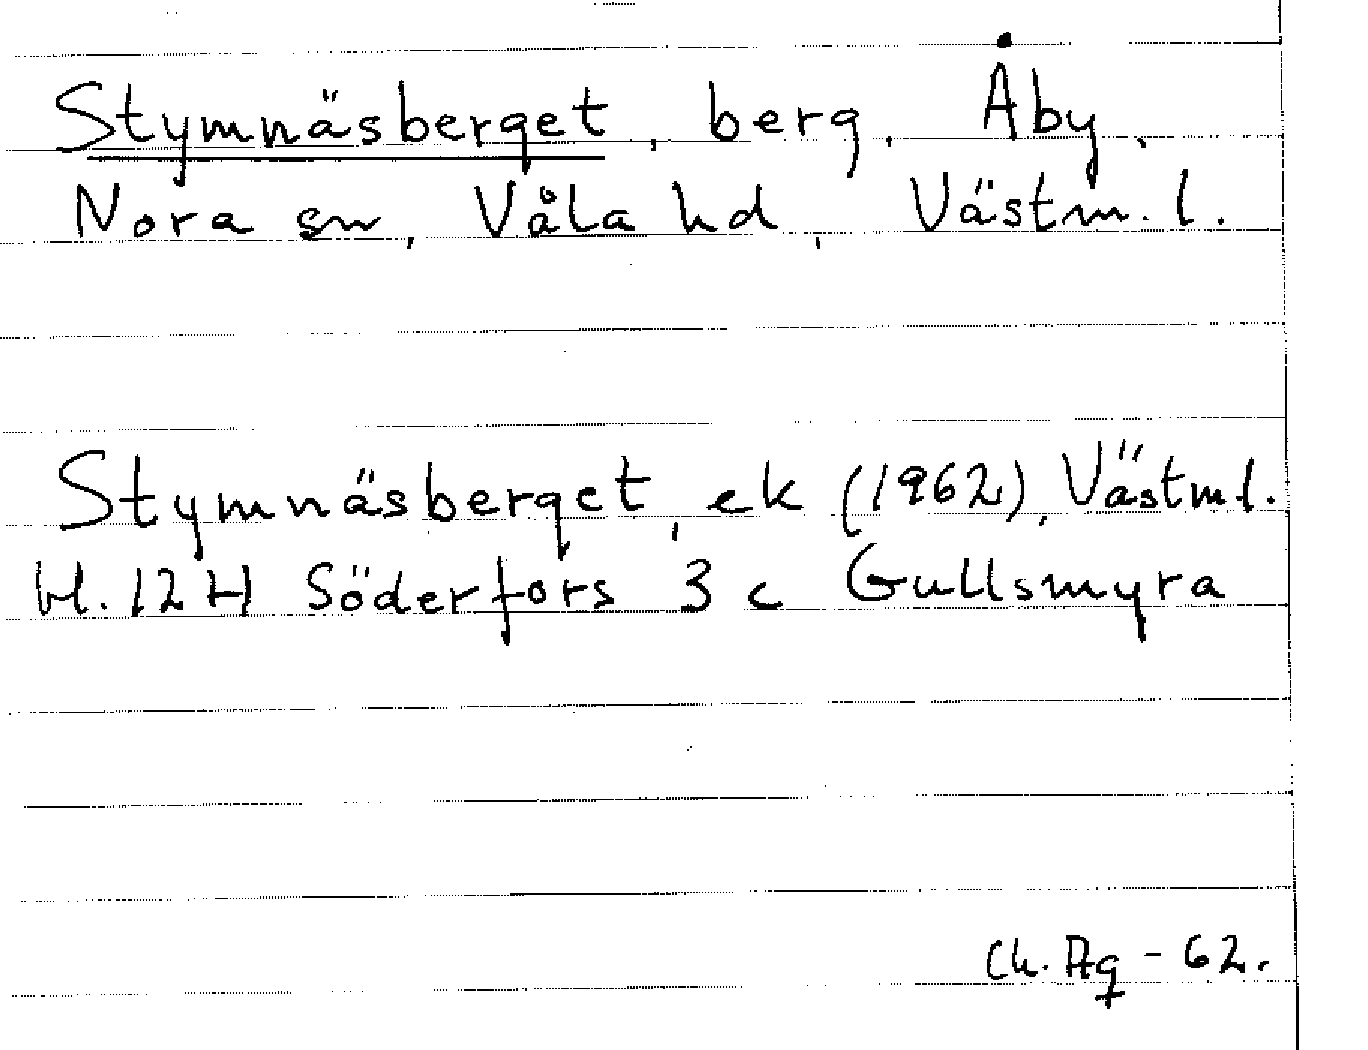 Stymnäsberget, berg, Åby,
Nora sn, Våla hd, Västm. l.
Stymnäsberget, ek (1962), Västm l.
bl. 12H Söderfors 3 c Gullsmyra
Ch. Ag - 62.